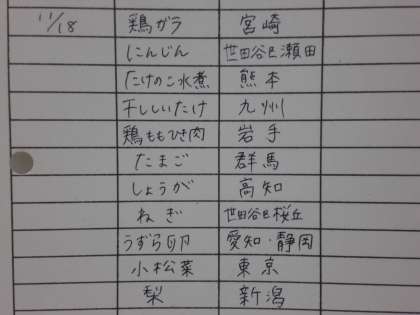 11/18 鶏ガラ 宮崎
にんじん 世田谷区瀬田
たけのこ水煮 熊本
干ししいたけ 九州
鶏ももひき肉 岩手
たまご 群馬
しょうが 高知
ねぎ 世田谷区桜丘
うずら卵 愛知・静岡
小松菜 東京
梨 新潟